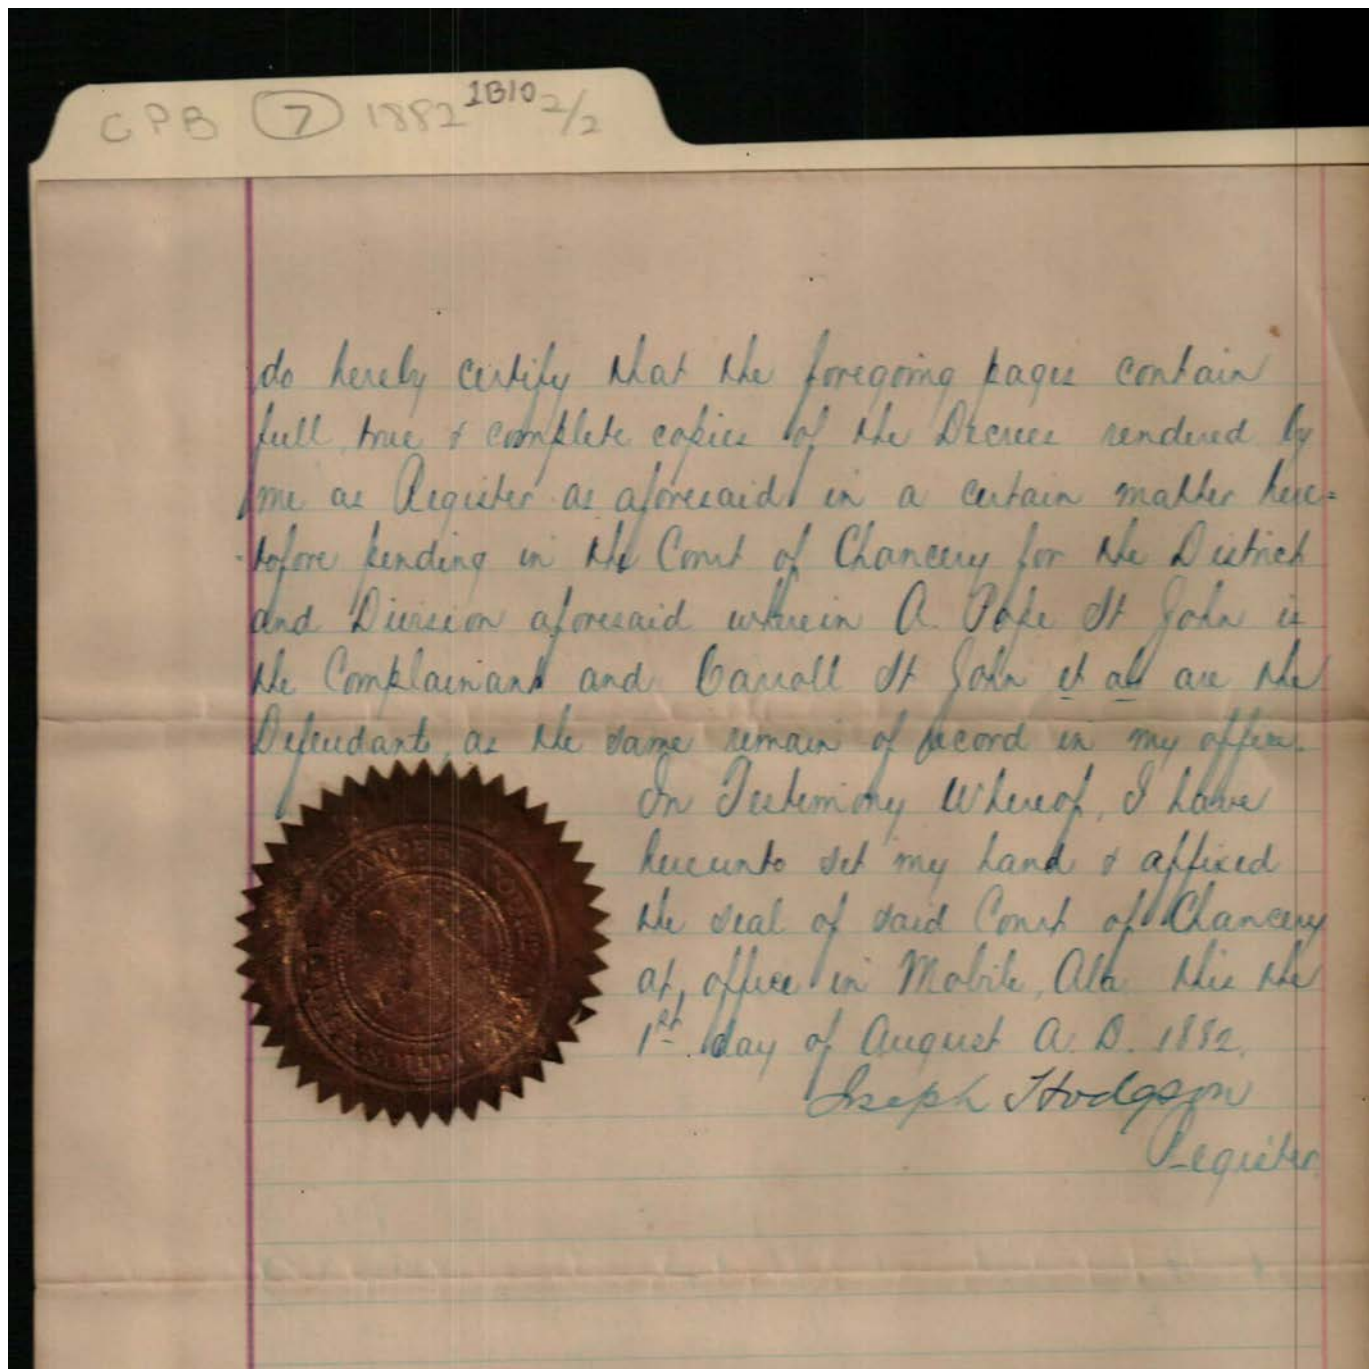 CPB 7 1882 1B10 2/2
do hereby certify that the foregoing pages contain
full, true & complete copies of the Decrees rendered by
me as Register as aforesaid in a certain matter here=
-tofore pending in the Court of Chancery for the District
and Division aforesaid wherein A. Pope St John is
the Complainant and Carroll St John et als are the
Defendants, as the same remain of record in my office.
In Testimony Whereof, I have
hereunto set my hand & affixed
the seal of said Court of Chancery
at office in Mobile, Ala this the
1st day of August A. D. 1882.
Joseph Hodgson
Register